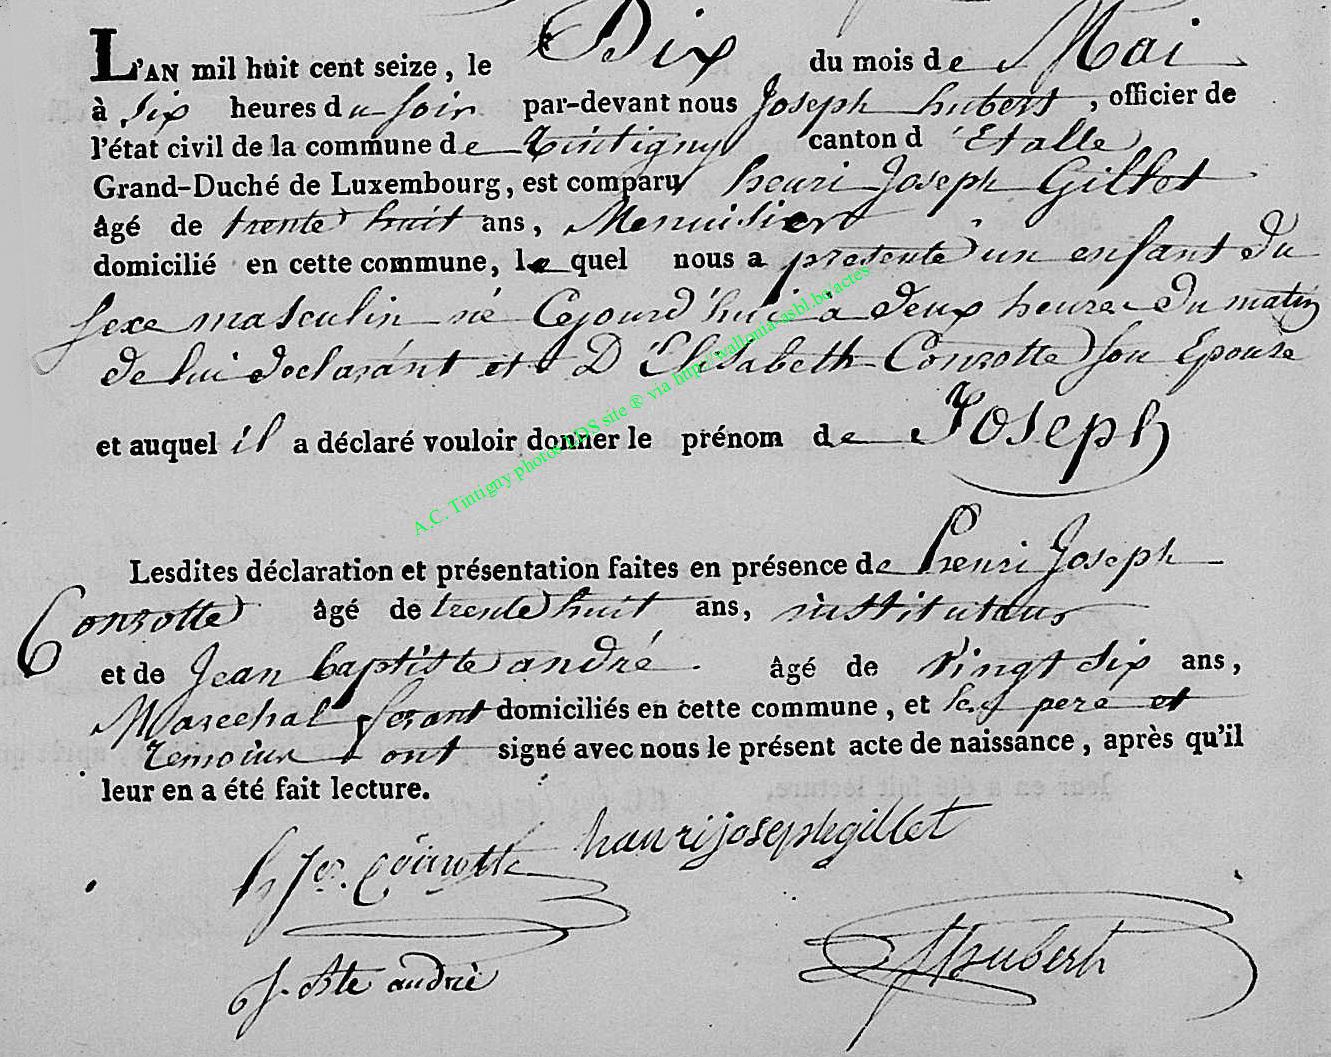 L'AN mil huit cent seize, le Dix du mois de Mai
à Six heures du soir par-devant nous Joseph hubert, officier de
l'état civil de la commune de Tintigny canton d'Etalle
Grand-Duché de Luxembourg, est comparu henri Joseph Gillot
âgé de trente huit ans, Menuisier
domicilié en cette commune, lequel nous a présenté un enfant du
sexe masculin né Cejourd'hui à deux heures du matin
de lui déclarant et D'Elisabeth Conrotte son Epouse
et auquel il a déclaré vouloir donner le prénom de Joseph
A.C. Tintigny photos LDS site ® via http://wallonia-asbl.be/actes
Lesdites déclaration et présentation faites en présence de henri Joseph
Conrotte âgé de trente huit ans, instituteur
et de Jean baptiste andré. âgé de Vingt Six ans,
Marechal ferant domiciliés en cette commune, et les pere et
temoins ont signé avec nous le présent acte de naissance, après qu'il
leur en a été fait lecture.
h Jos. Conrotte hanrijosephgillet
J. Bte andré Hubert